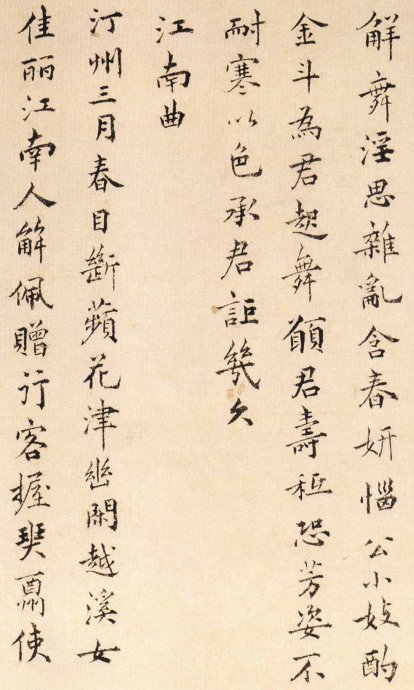 解舞淫思雜亂含春妍惱公小妓酌
金斗為君起舞願君壽秖恐芳姿不
耐寒以色承君詎幾久
江南曲
汀州三月春目斷蘋花津幽閑越溪女
佳麗江南人解佩贈行客握㷼使